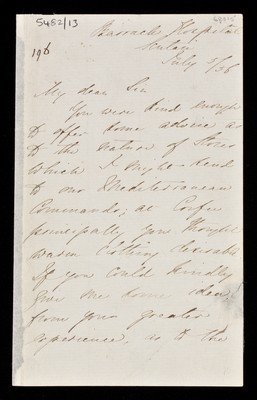 5482/13
196
Barrack Hospital
Scutari
July 2/56
My dear Sir
You were kind enough
to offer some advice as
to the nature of Stores
which I might send
to our Mediterranean
Commands; at Corfu
principally you thought
warm Clothing desirable
If you could kindly
give me some idea,
from your greater
experience, as to the